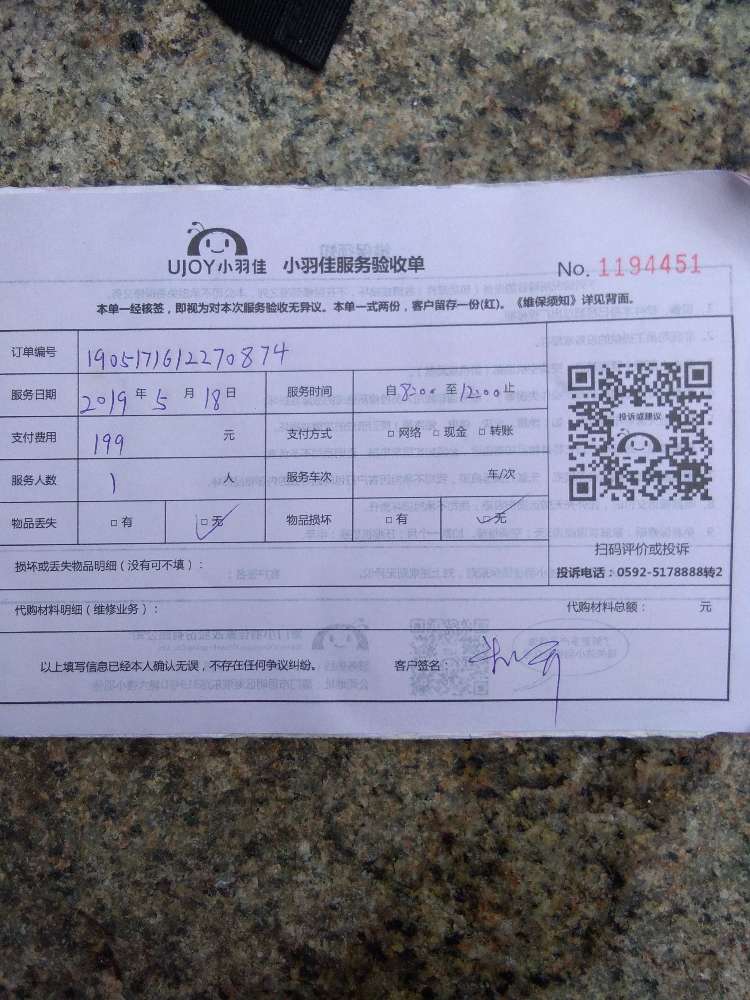 UJOY小羽佳 小羽佳服务验收单
No. 1194451
本单一经核签，即视为对本次服务验收无异议。本单一式两份，客户留存一份(红)。《维保须知》详见背面。
订单编号 1905171612270874
服务日期 2019 年 5 月 18 日 服务时间 自 8:00 至 12:00 止
支付费用 199 元 支付方式 □ 网络 □ 现金 □ 转账
服务人数 1 人 服务车次 车/次
物品丢失 □ 有 □ 无 物品损坏 □ 有 □ 无
投诉或建议
扫码评价或投诉
投诉电话：0592-5178888转2
损坏或丢失物品明细（没有可不填）：
代购材料明细（维修业务）： 代购材料总额： 元
以上填写信息已经本人确认无误，不存在任何争议纠纷。 客户签名：